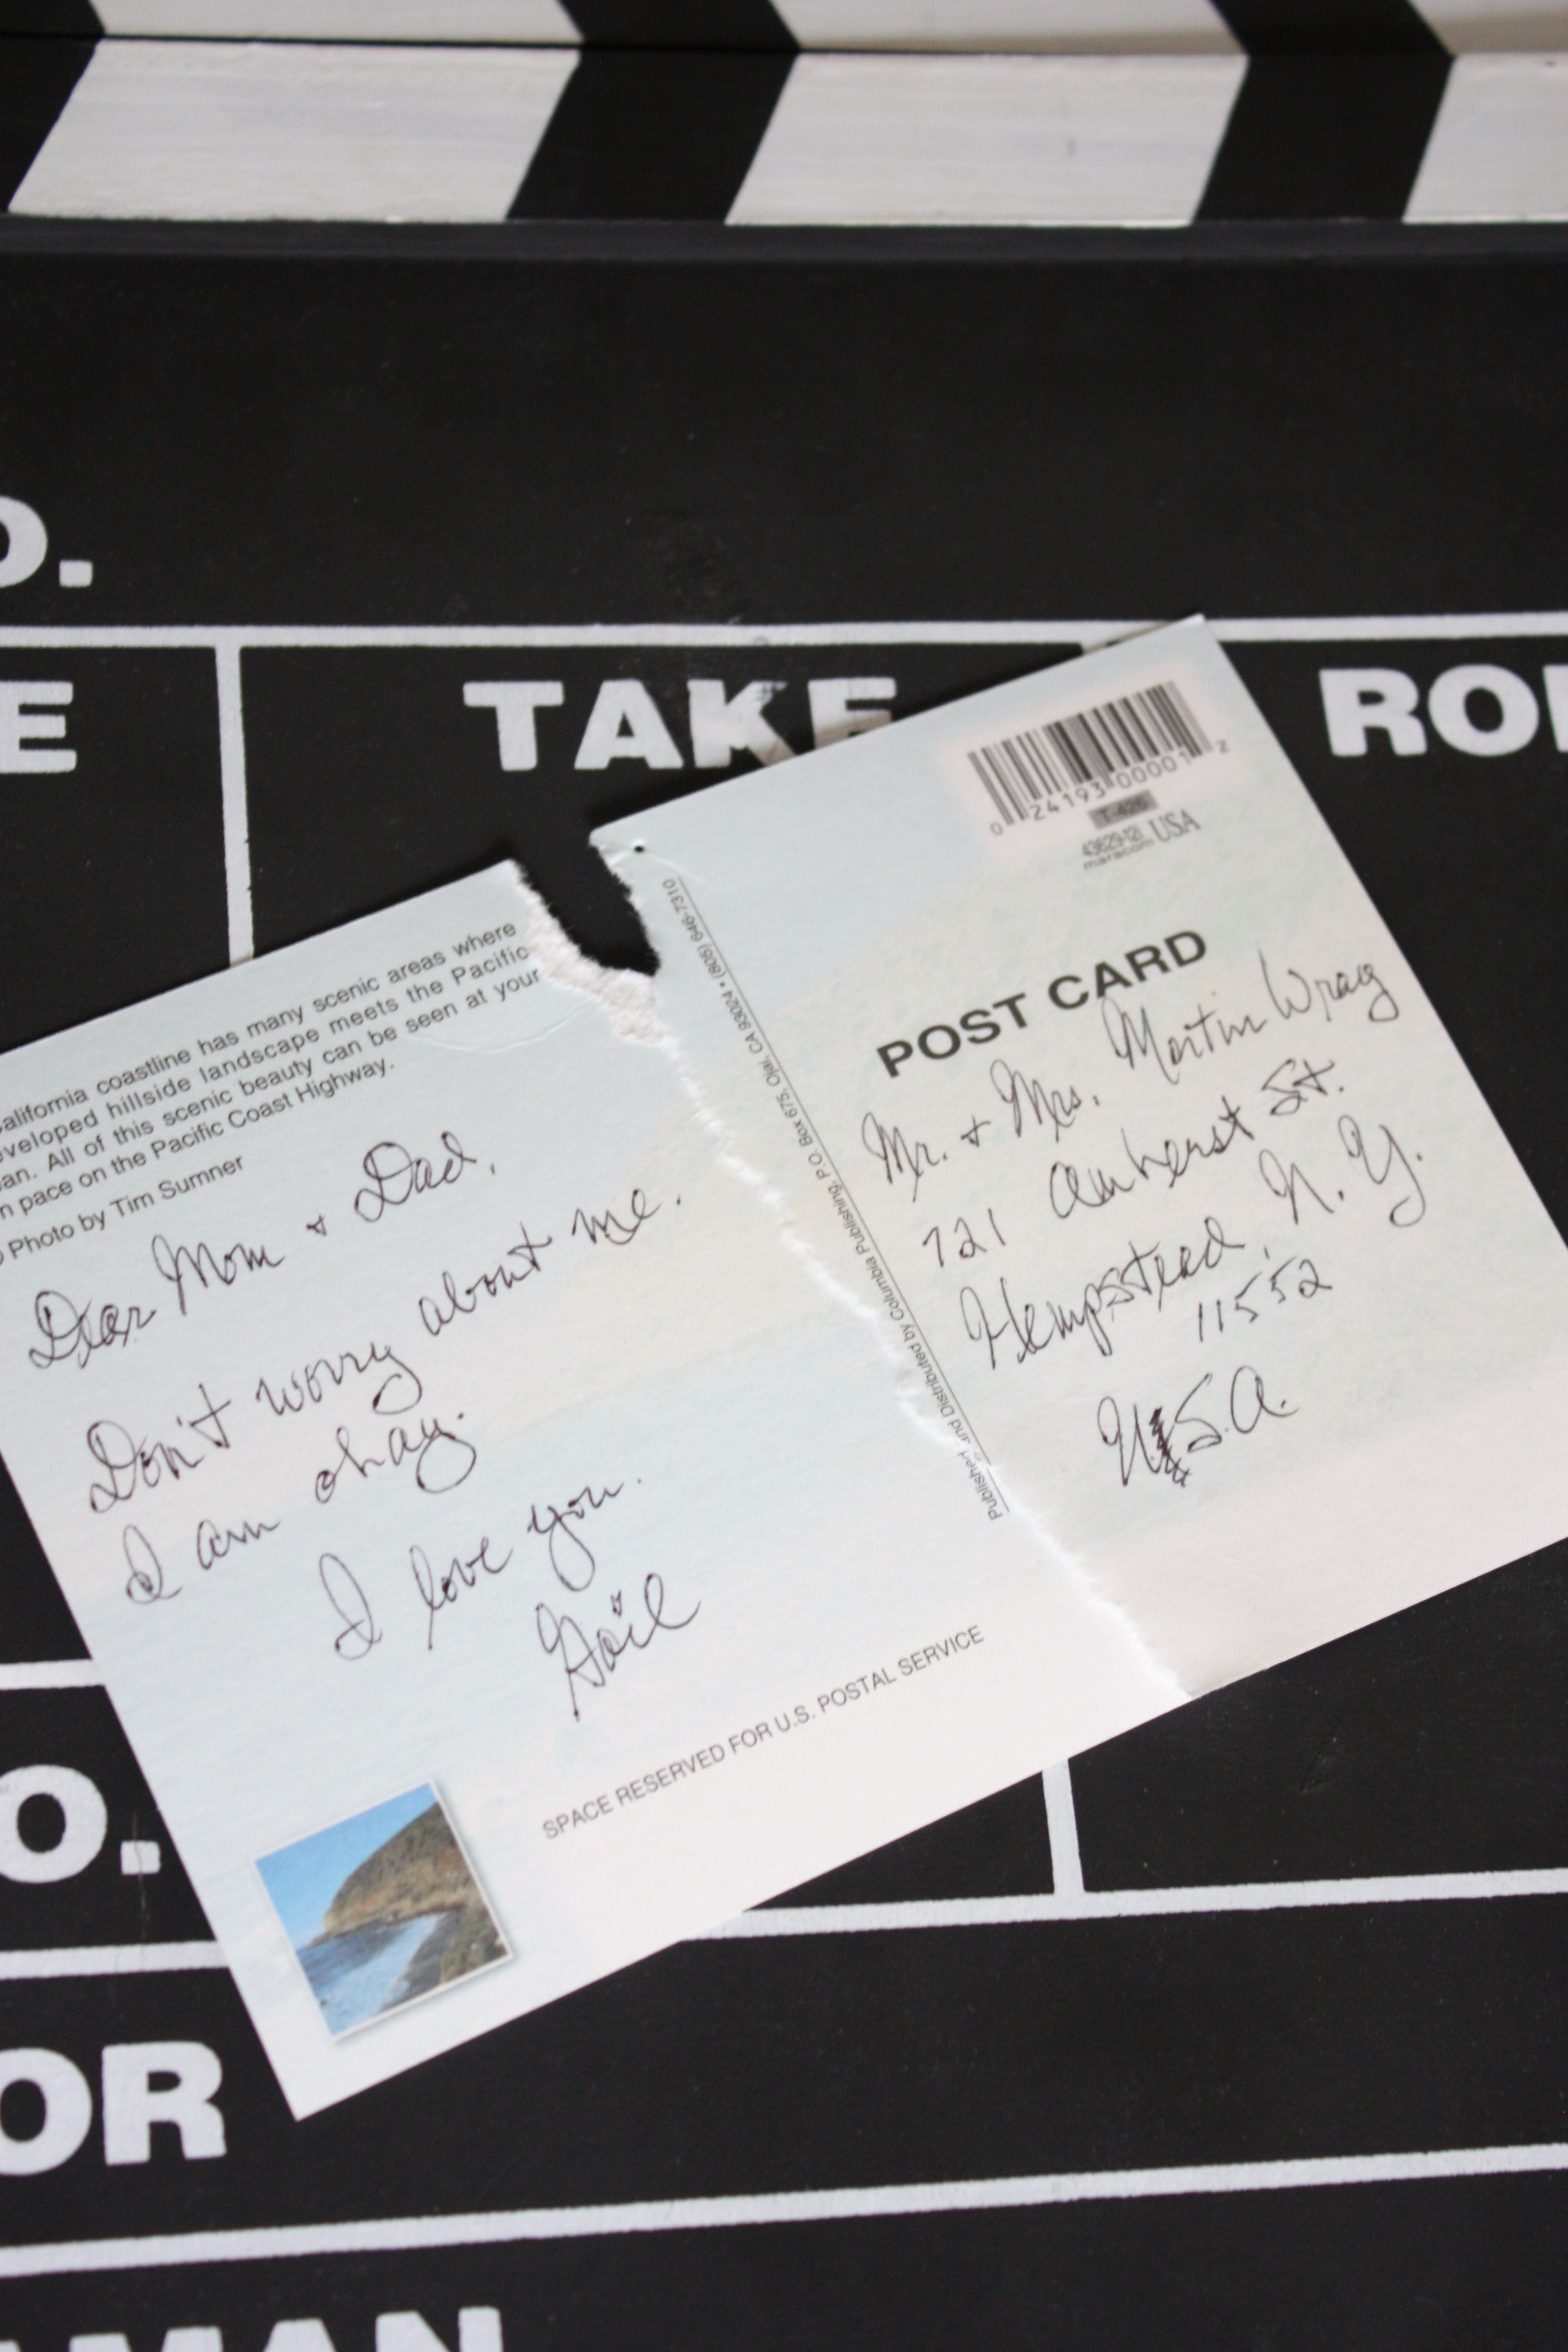 O.
E
TAKE
RO
alifornia coastline has many scenic areas where
eveloped hillside landscape meets the Pacific
an. All of this scenic beauty can be seen at your
n pace on the Pacific Coast Highway.
Photo by Tim Sumner
Dear Mom + Dad,
Don't worry about me.
I am okay.
I love you.
Gail
SPACE RESERVED FOR U.S. POSTAL SERVICE
Published and Distributed by Columbia Publishing, P.O. Box 675, Ojai, CA 93024 • (805) 646-7310
0 24193 00001 2
T-426
43629-121
maracom USA
POST CARD
Mr. + Mrs. Martin Wrag
721 Amherst St.
Hempstead, N.Y.
11552
U.S.A.
O.
OR
MAN